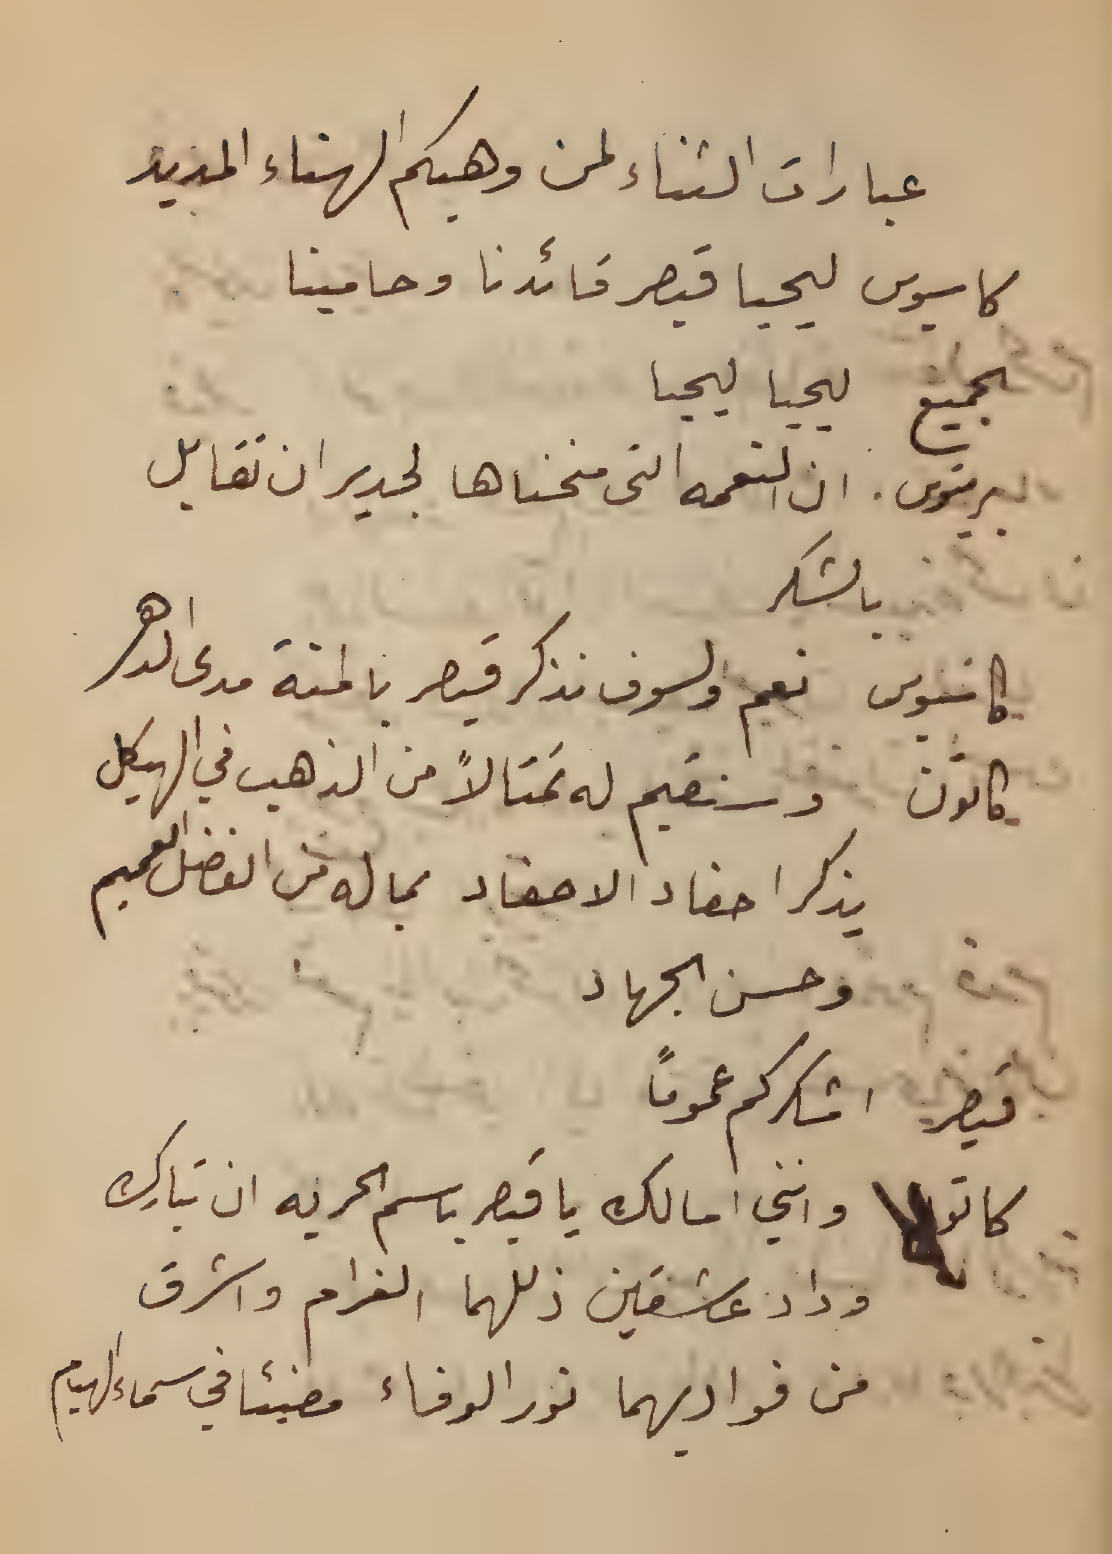 عبارات الثناء لمن وهبكم الهناء المزيد
كاسيوس ليحيا قيصر قائدنا وحامينا
الجميع ليحيا ليحيا
بريتوس. ان النعمه التى منحناها لجدير ان تقابل
بالشكر
كاسيوس نعم ولسوف نذكر قيصر بالمنة مدى الدهر
كاتون وسنقيم له تمثالاً من الذهب في الهيكل
يذكر احفاد الاحفاد بماله من الفضل العميم
وحسن الجهاد
قيصر اشكركم عموماً
كاتون وانني اسالك يا قيصر باسم الحريه ان تبارك
وداد عشقين ذللهما الغرام واشرق
من فواديهما نور الوفاء مضيئا في سماء الهيام